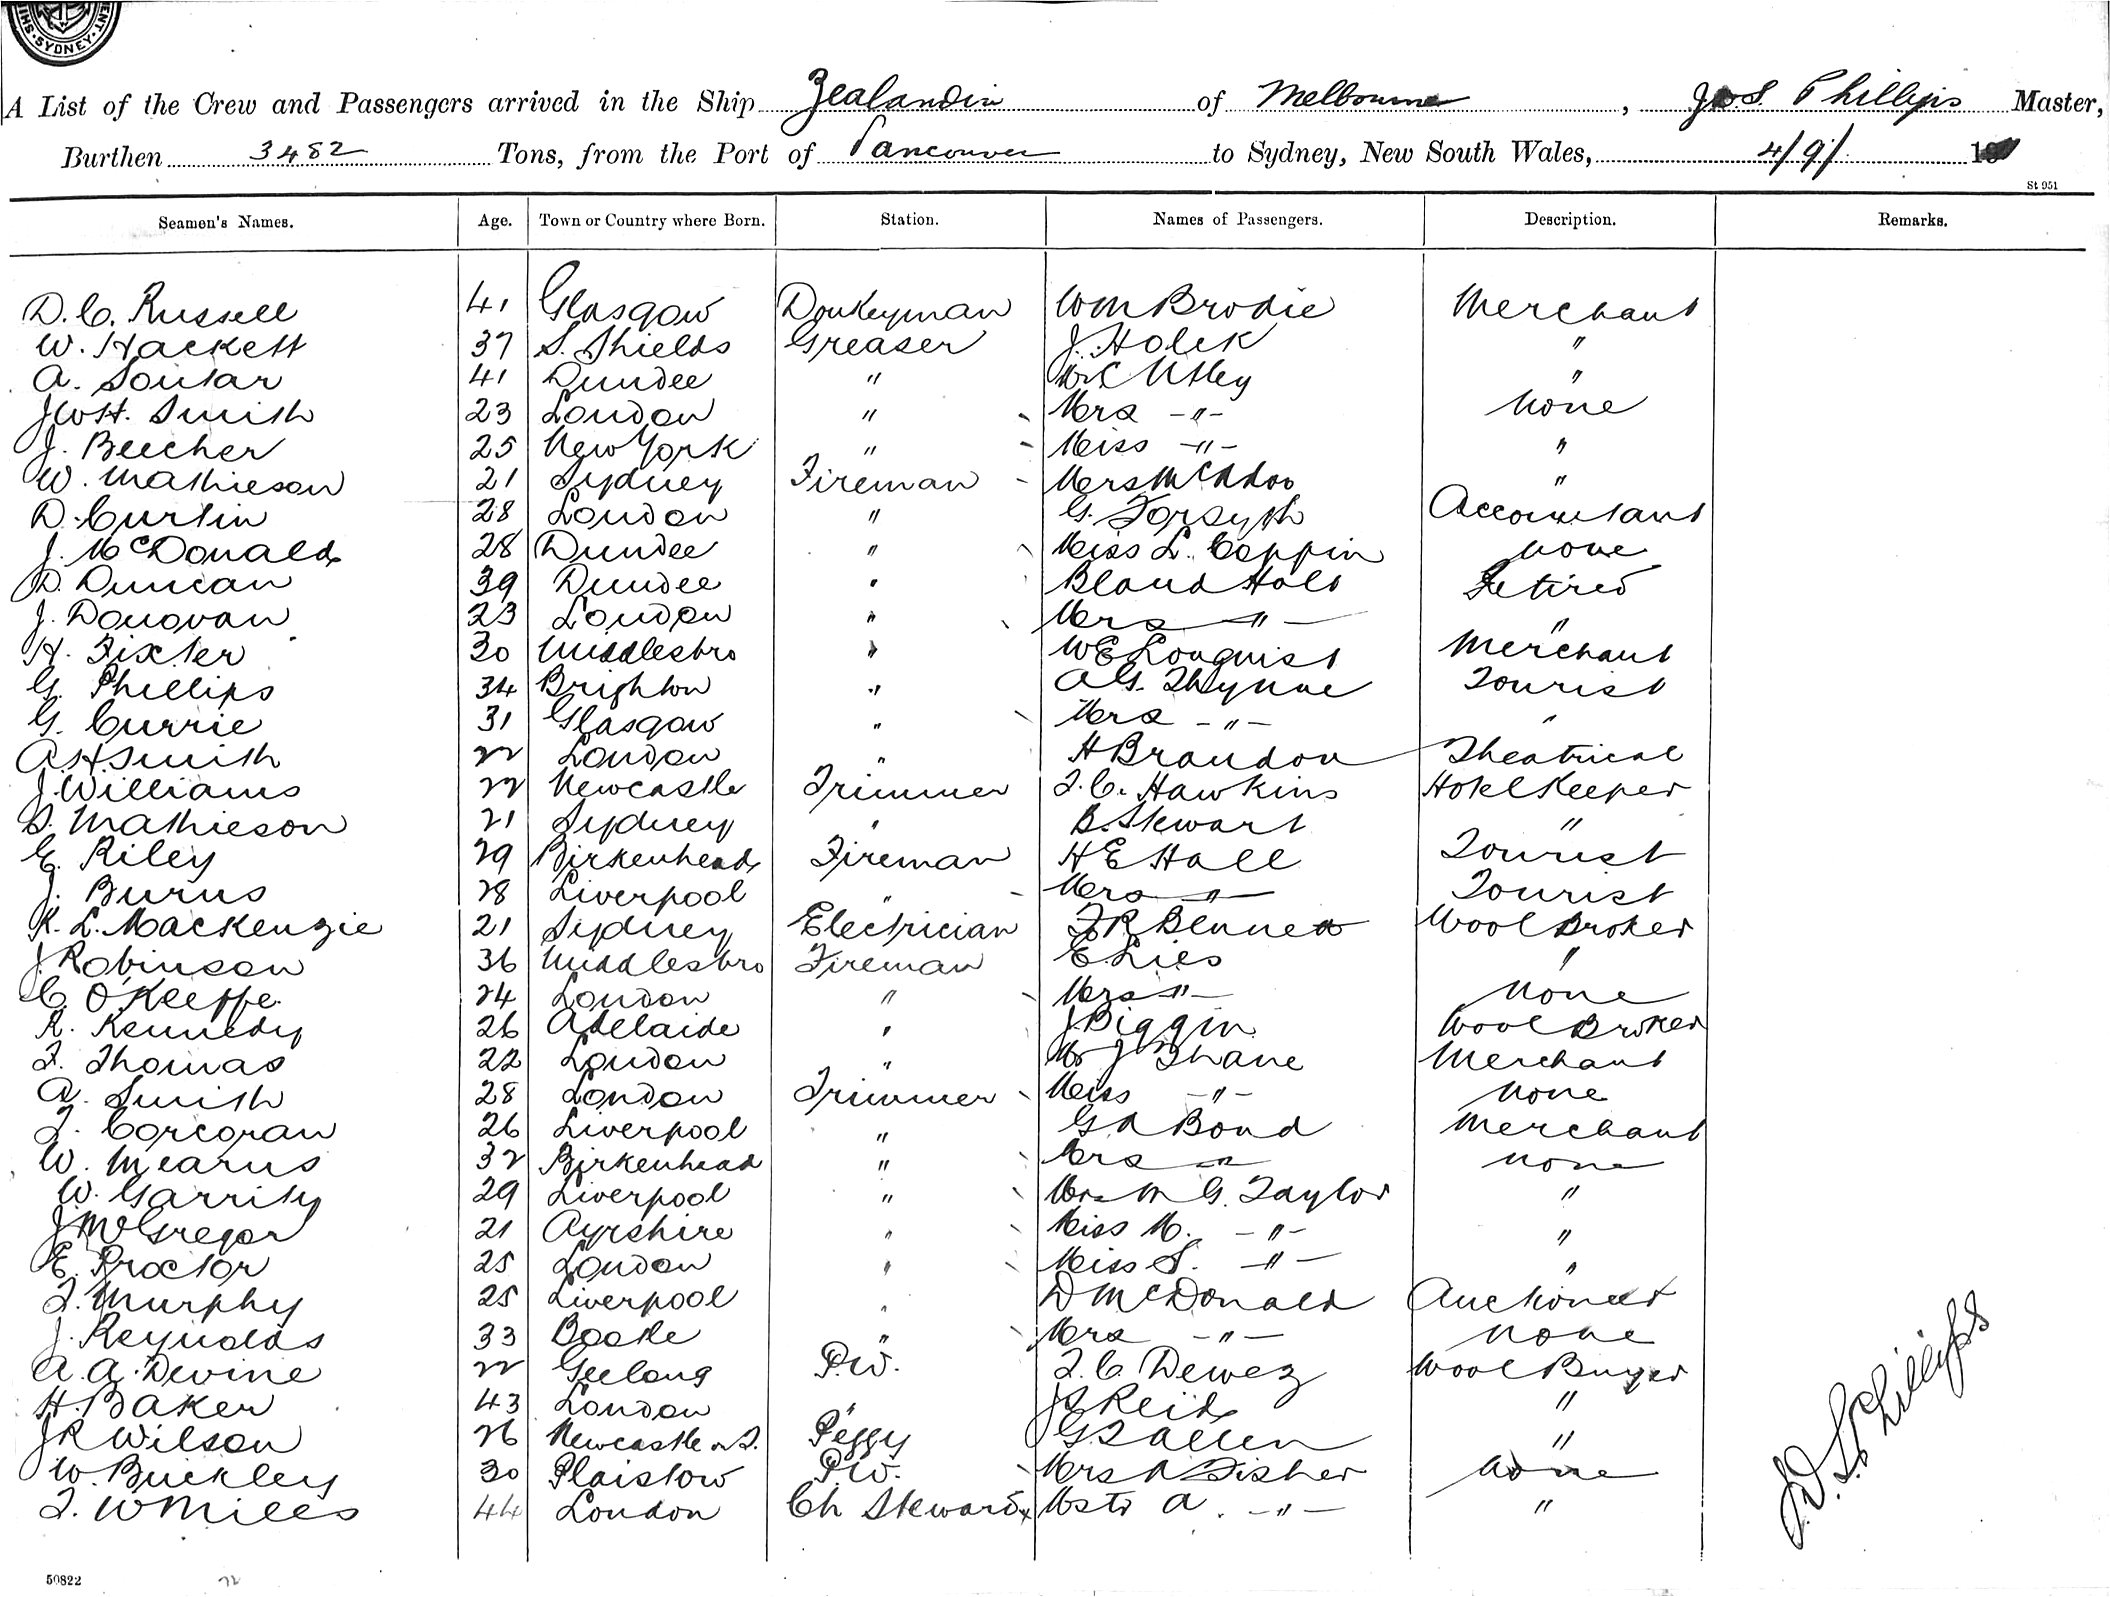 SYDNEY
A List of the Crew and Passengers arrived in the Ship Zealandia of Melbourne, Phillips Master,
Burthen 3482 Tons, from the Port of Vancouver to Sydney, New South Wales, 4/9/ 1
St 951
Seamen's Names. Age. Town or Country where Born. Station. Names of Passengers. Description. Remarks.
D. C. Russell 41 Glasgow Donkeyman Wm Brodie Merchant
W. Hackett 37 S. Shields Greaser J. Holck "
A. Soutar 41 Dundee " Utley "
J W H. Smith 23 London " Mrs -"- None
J. Beecher 25 New York " Miss -"- "
W. Mathieson 21 Sydney Fireman - Mrs McAdoo "
D. Curtin 28 London " G. Forsyth Accountant
J. McDonald 28 Dundee " Miss L. Coppin None
D. Duncan 39 Dundee " Bland Holt Retired
J. Donovan 23 London " Mrs -"- "
H. Fixter 30 Middlesbro " W E Lonquist Merchant
G. Phillips 34 Brighton " A G. Thynne Tourist
G. Currie 31 Glasgow " Mrs -"- "
A. H. Smith 22 London " H Brandon Theatrical
J. Williams 22 Newcastle Trimmer J. C. Hawkins Hotel Keeper
D. Mathieson 21 Sydney " B. Stewart "
E. Riley 29 Birkenhead Fireman H E Hall Tourist
J. Burns 28 Liverpool " Mrs -"- Tourist
K. L. Mackenzie 21 Sydney Electrician F R Bennett Wool Broker
J Robinson 36 Middlesbro Fireman E Lies "
C. O'Keeffe 24 London " Mrs -"- None
R. Kennedy 26 Adelaide " J Biggin Wool Broker
F. Thomas 22 London " Mr J Thane Merchant
A. Smith 28 London Trimmer Miss -"- None
J. Corcoran 26 Liverpool " G A Bond Merchant
W. Mearns 32 Birkenhead " Mrs -"- None
W. Garrity 29 Liverpool " Mrs M G. Taylor "
J McGregor 21 Ayrshire " Miss M. -"- "
E. Proctor 25 London " Miss S. -"- "
J. Murphy 25 Liverpool " D McDonald Auctioneer
J. Reynolds 33 Bootle " Mrs -"- None
A. A. Devine 22 Geelong P.W. J. C. Dewez Wool Buyer
H. Baker 43 London " J S Reid "
J R Wilson 26 Newcastle Peggy G S Allen "
W. Buckley 30 Plaistow P.W. Mrs A Fisher None
J. W Miles 44 London Ch Steward Mstr A. -"- "
J. D. S. Phillips
50822 72